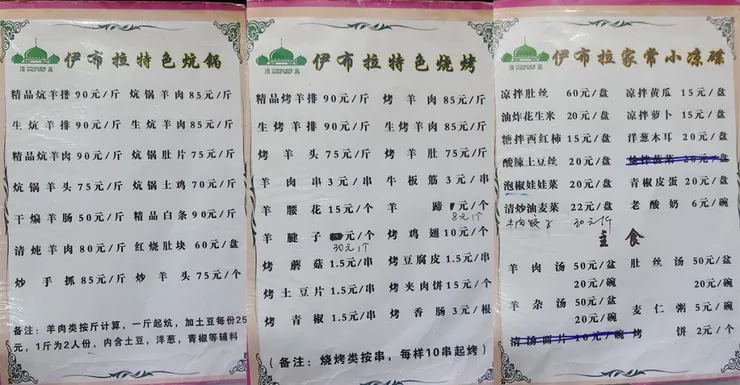 伊布拉特色炕锅
精品炕羊排 90元/斤 炕锅羊肉 85元/斤
生炕羊排 90元/斤 生炕羊肉 85元/斤
精品炕羊肉 90元/斤 炕锅肚片 75元/斤
炕锅羊头 75元/斤 炕锅土鸡 70元/斤
干煸羊肠 50元/斤 精品白条 90元/斤
清炖羊肉 80元/斤 红烧肚块 60元/盘
炒手抓 85元/斤 炒羊头 75元/个
备注：羊肉类按斤计算，一斤起炕，加土豆每份25
元，1斤为2人份，内含土豆，洋葱，青椒等辅料
伊布拉特色烧烤
精品烤羊排 90元/斤 烤羊肉 85元/斤
生烤羊排 90元/斤 生烤羊肉 85元/斤
烤羊头 75元/斤 烤羊肚 75元/斤
羊肉串 3元/串 牛板筋 3元/串
羊腰花 15元/个 羊蹄 元/个
8元1个
羊腱子 元/个 烤鸡翅 10元/个
30元1个
烤蘑菇 1.5元/串 烤豆腐皮 1.5元/串
烤土豆片 1.5元/串 烤夹肉饼 15元/个
烤青椒 1.5元/串 烤香肠 3元/根
（备注：烧烤类按串，每样10串起烤）
伊布拉家常小凉碟
凉拌肚丝 60元/盘 凉拌黄瓜 15元/盘
油炸花生米 20元/盘 凉拌萝卜 15元/盘
糖拌西红柿 15元/盘 洋葱木耳 20元/盘
酸辣土豆丝 20元/盘 拌菠菜 20元/盘
泡椒娃娃菜 20元/盘 青椒皮蛋 20元/盘
清炒油麦菜 22元/盘 老酸奶 6元/碗
牛肉饺子 30元/斤
主食
羊肉汤 50元/盆 肚丝汤 50元/盆
20元/碗 20元/碗
羊杂汤 50元/盆 麦仁粥 5元/碗
20元/碗
清汤面片 10元/碗 烤饼 2元/个